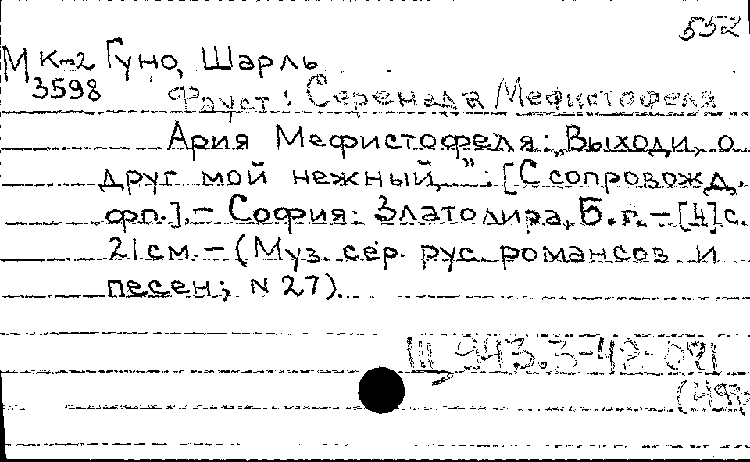 552
М К-2 Гуно, Шарль
3598
Фауст: Серенада Мефистофеля
Ария Мефистофеля: „Выходи, о
друг мой нежный..." : [С сопровожд.
фп.]. – София: Златолира, Б.г. – [4] с.
21 см. – (Муз. сер. рус. романсов и
песен; N 27).
III, 943.3-42-081